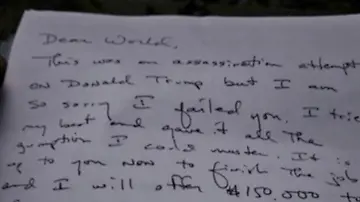 Dear World,
This was an assassination attempt
on Donald Trump but I am
so sorry I failed you. I tried
my best and gave it all the
gumption I could muster. It is
up to you now to finish the job
and I will offer $150,000 to